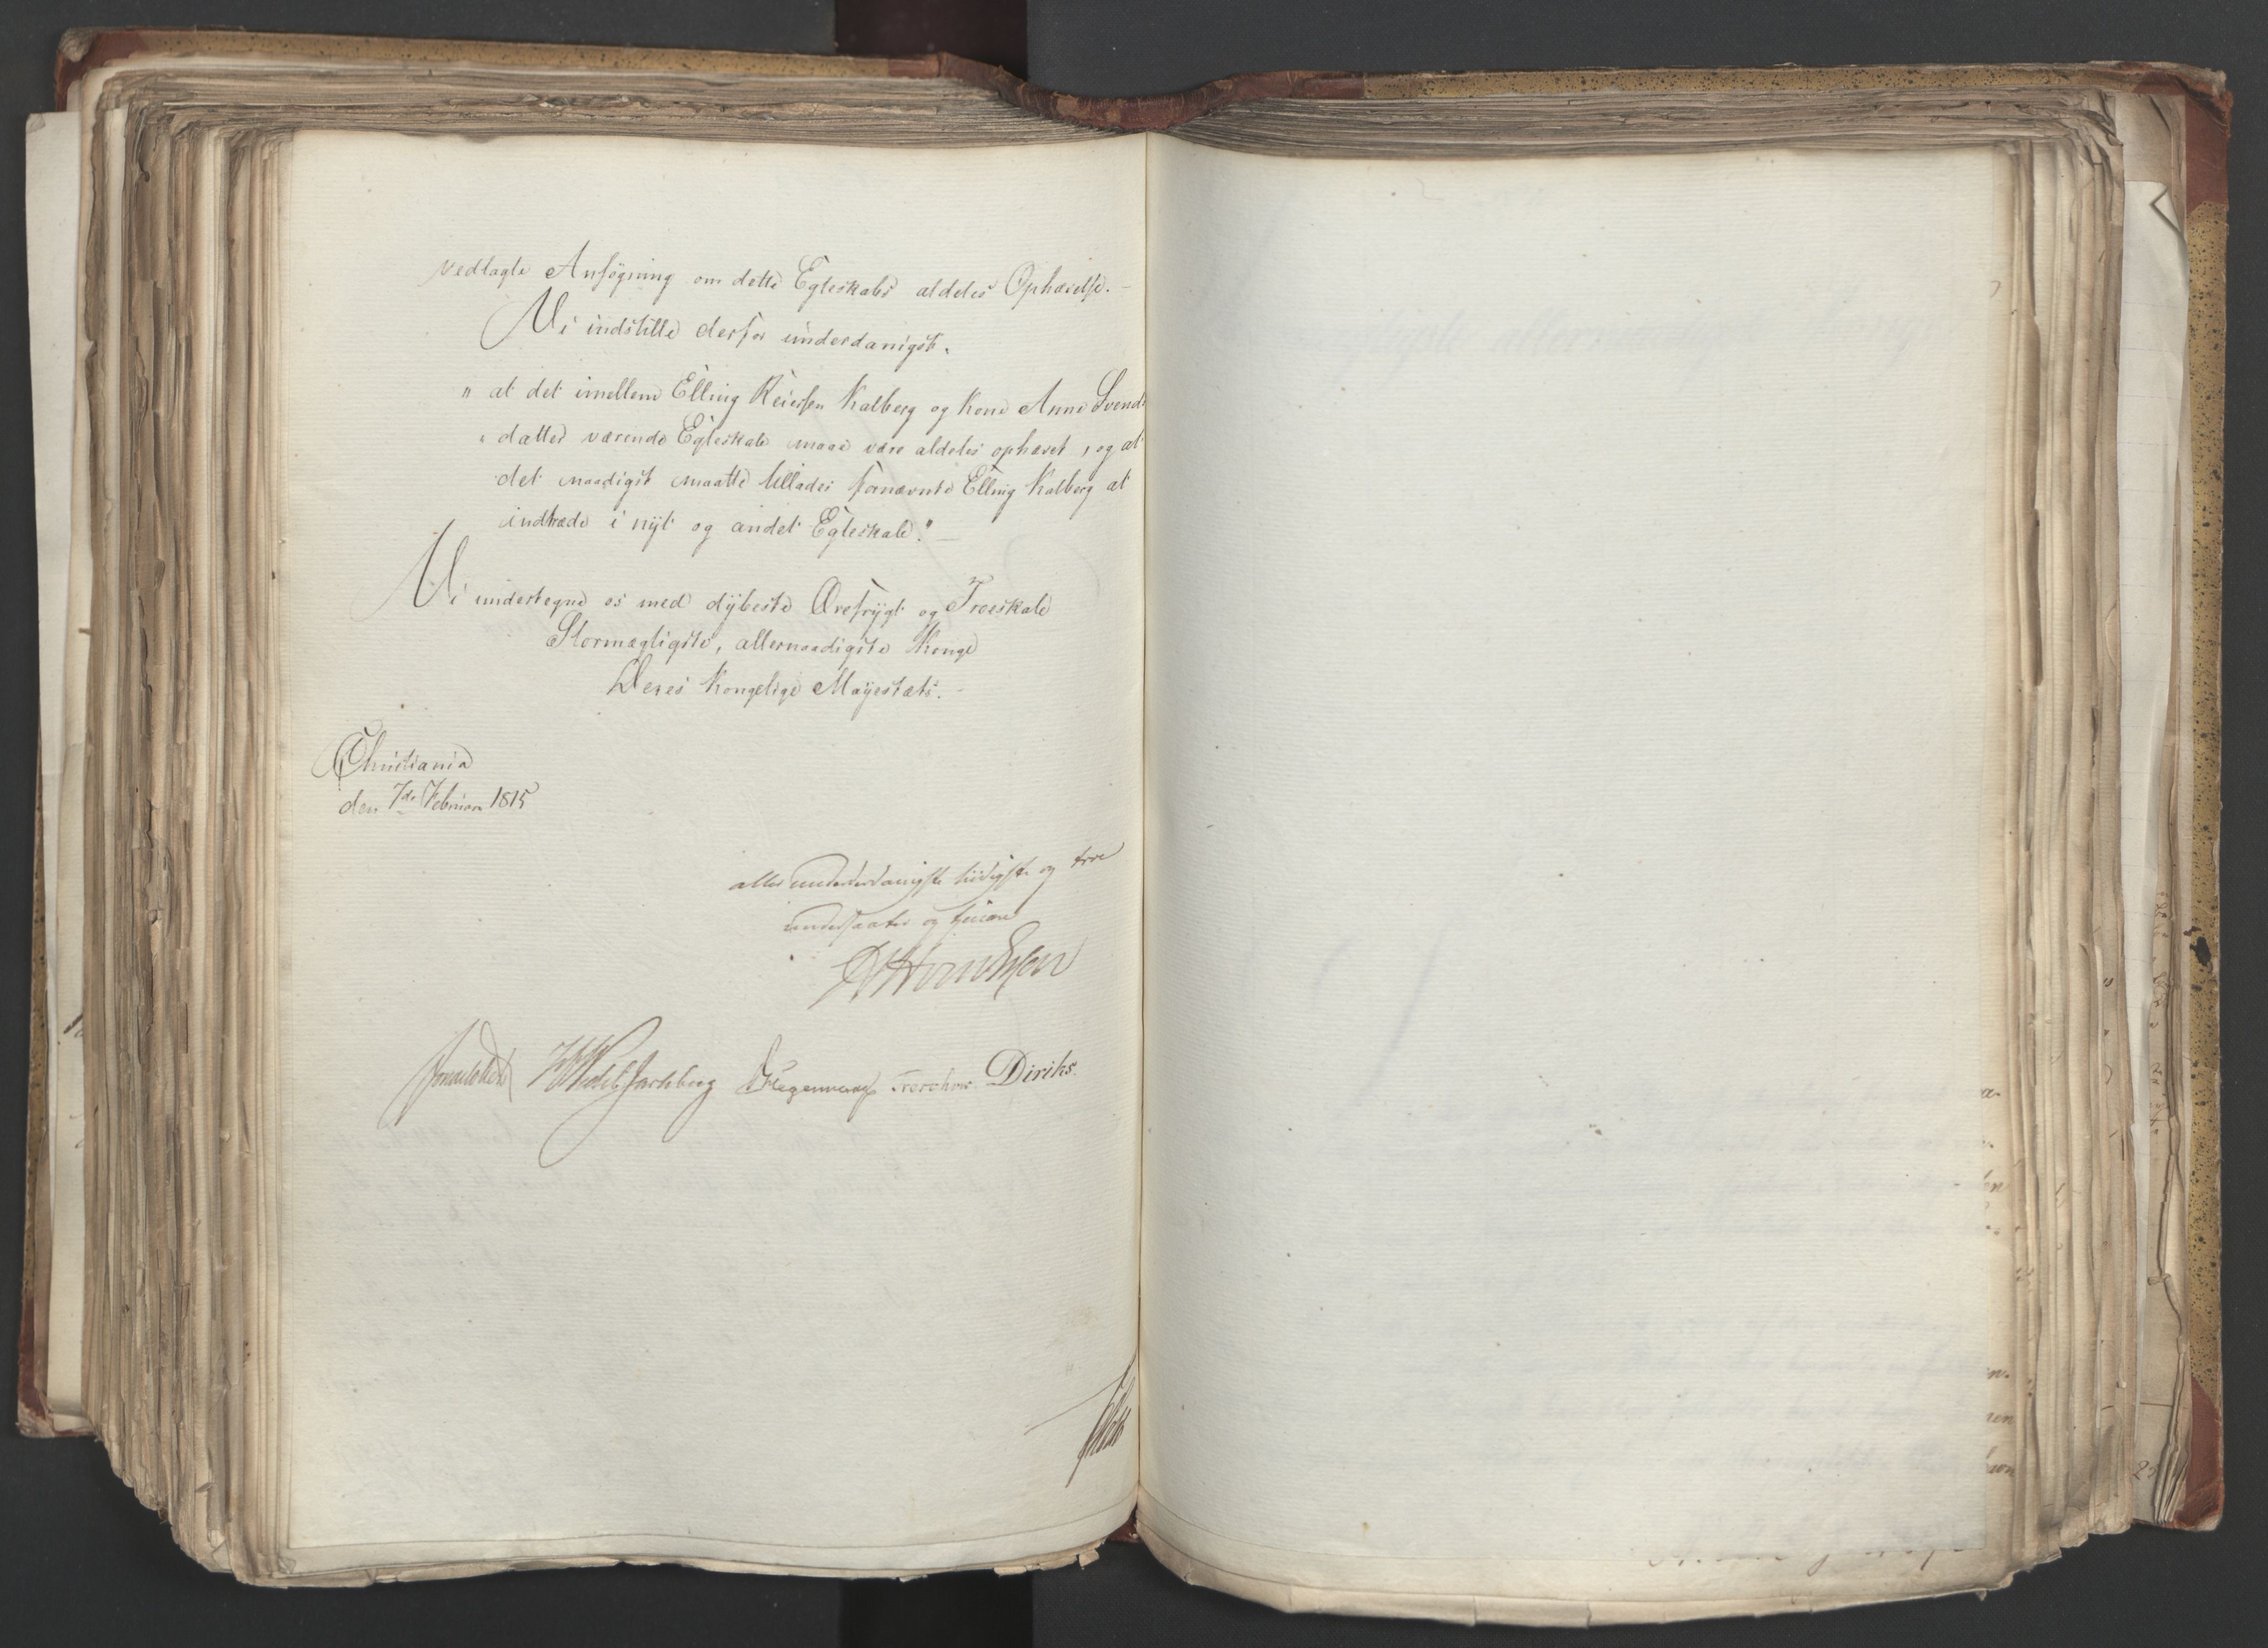 vedlagte Ansøgning om dette Egteskabs aldeles Ophævelse. –
Vi indstille derfor underdanigst.
" at det imellem Elling Reiersen Kalberg og Kone Anne Svends
" datter værende Egteskab maae være aldeles ophævet, og at
det naadigst maatte tillades fornævnte Elling Kalberg at
indtræde i nÿt og andet Egteskab." –
Vi undertegne os med dÿbeste Ærefrÿgt og Troeskab
Stormægtigste, allernaadigste Konge
Deres Kongelige Mayestæts. –
Christiania
den 7de Februar 1815
allerunderdanigste lydigste og troe
undersaatter og tjenere
Sommerhielm HWedelJarlsberg DHegermann Treschow Diriks.